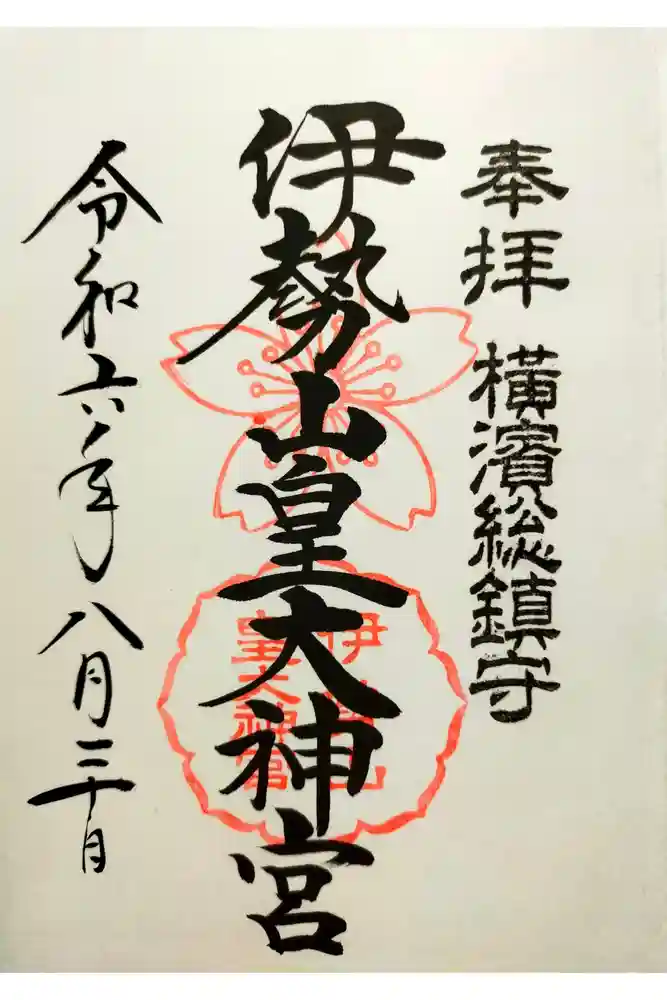 奉拝 横濱総鎮守
伊勢山皇大神宮
伊勢山
皇大神宮
令和六年八月三十日